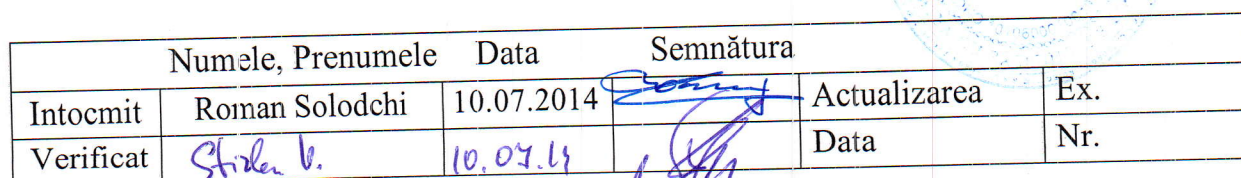 Numele, Prenumele Data Semnătura
Intocmit Roman Solodchi 10.07.2014 Actualizarea Ex.
Verificat V. 10.07.14 Data Nr.